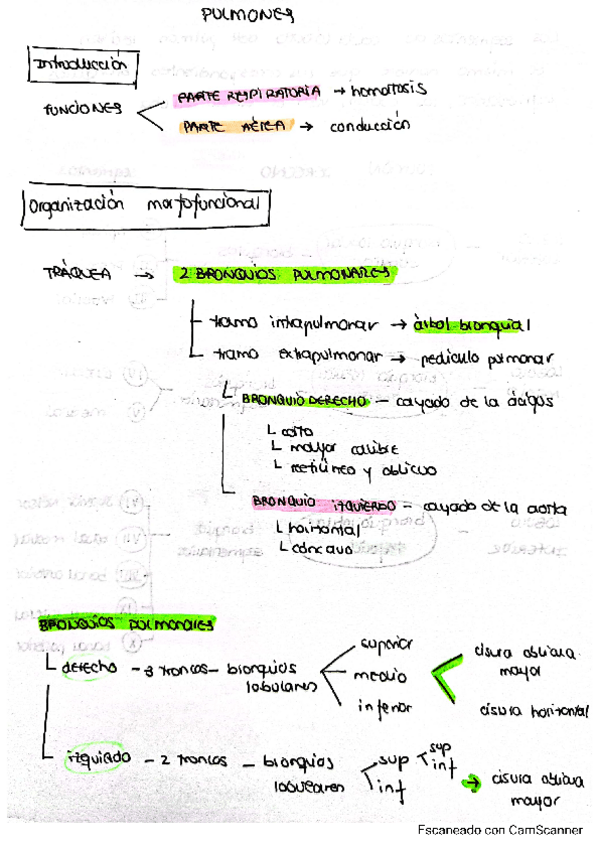 PULMONES
Introducción
FUNCIONES
PARTE RESPIRATORIA → homotosis
PARTE AÉREA → conducción
Organización morfofuncional
TRÁQUEA → 2 BRONQUIOS PULMONARES
tramo intrapulmonar → árbol bronquial
tramo extrapulmonar → pedículo pulmonar
BRONQUIO DERECHO - cayado de la ácigos
corto
mayor calibre
rectilíneo y oblicuo
BRONQUIO IZQUIERDO - cayado de la aorta
horizontal
cóncavo
BRONQUIOS PULMONARES
derecho - 3 troncos - bronquios lobulares
superior
medio
inferior
cisura oblicua mayor
cisura horizontal
izquierdo - 2 troncos - bronquios lobulares
sup
inf
sup
inf
→ cisura oblicua mayor
Escaneado con CamScanner